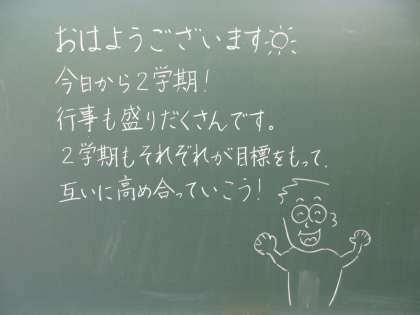 おはようございます
今日から2学期!
行事も盛りだくさんです。
2学期もそれぞれが目標をもって、
互いに高め合っていこう!